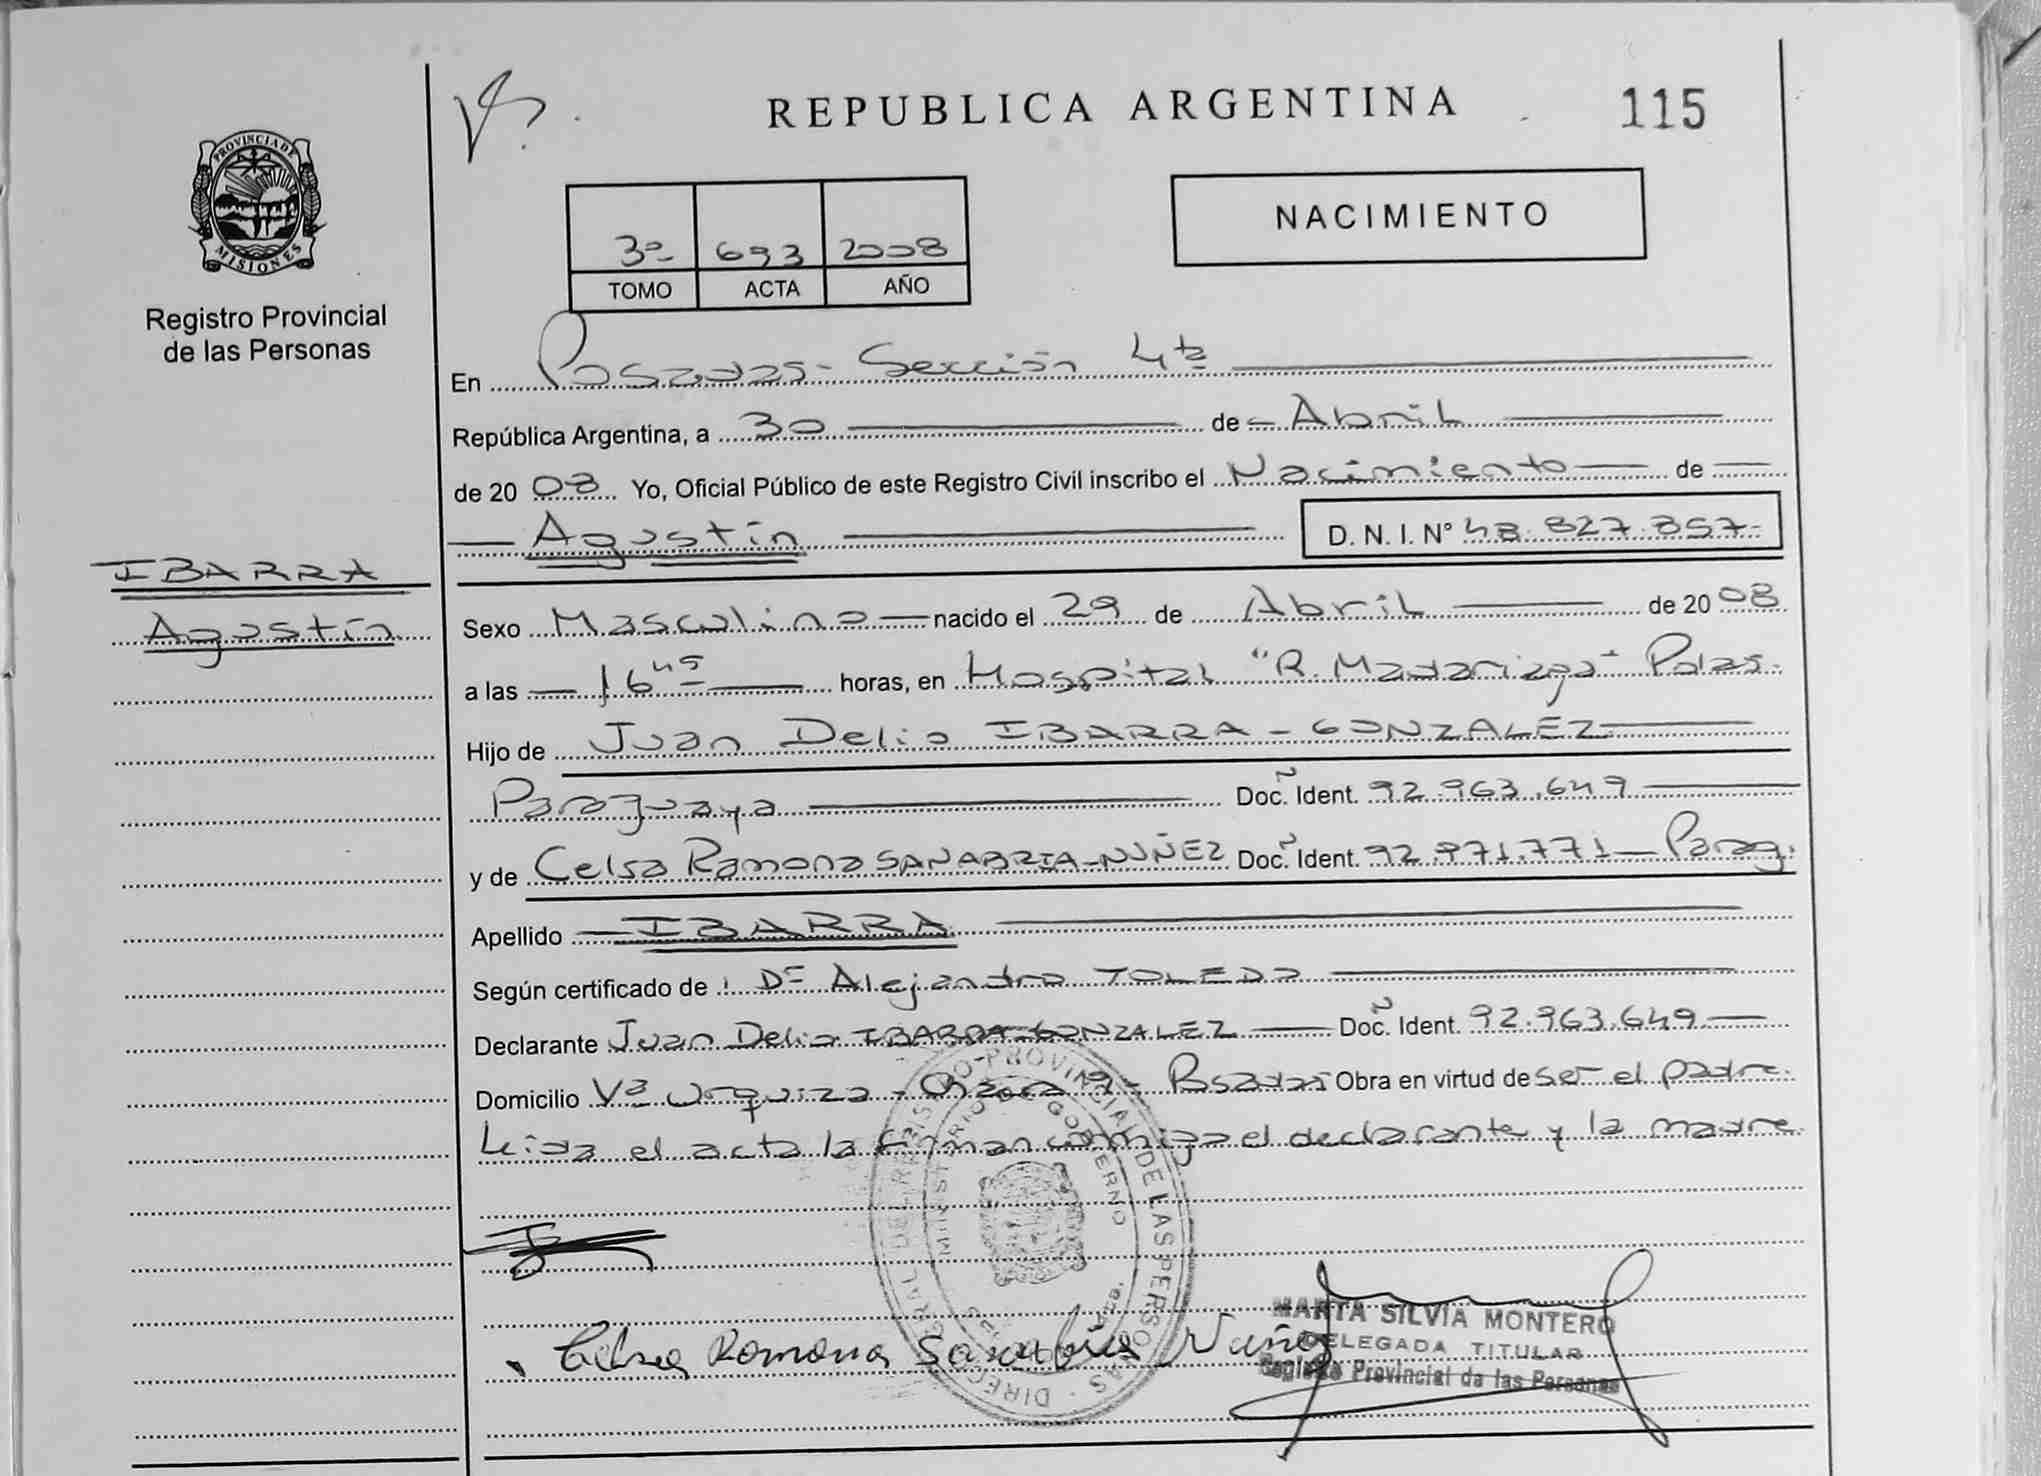 REPUBLICA ARGENTINA
115
PROVINCIA DE
MISIONES
Registro Provincial
de las Personas
3º 693 2008
TOMO ACTA AÑO
NACIMIENTO
En Posadas - Sección 4ta
República Argentina, a 30 de Abril
de 20 08 Yo, Oficial Público de este Registro Civil inscribo el Nacimiento de
Agustín D.N.I. Nº 48.827.857.-
IBARRA
Agustín
Sexo Masculino nacido el 29 de Abril de 20 08
a las 16 45 horas, en Hospital "R. Madariaga" Pdas.
Hijo de Juan Delio IBARRA - GONZALEZ
Paraguaya Doc. Ident. 92.963.649
y de Celsa Ramona SANABRIA - NUÑEZ Doc. Ident. 92.971.771 - Parag.
Apellido IBARRA
Según certificado de : Dr Alejandro TOLEDO
Declarante Juan Delio IBARRA - GONZALEZ Doc. Ident. 92.963.649
Domicilio Vª Urquiza - Posadas Obra en virtud de ser el padre.
Leida el acta la firman conmigo el declarante y la madre
DIRECCION GENERAL DEL REGISTRO PROVINCIAL DE LAS PERSONAS
MINISTERIO DE GOBIERNO
Celsa Ramona Sanabria Nuñez
MARTA SILVIA MONTERO
DELEGADA TITULAR
Registro Provincial de las Personas